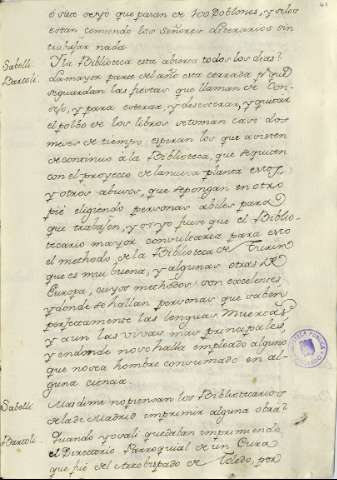 ó seis or yo que pasan de 100 Doblones, y se los
estan comiendo los Señores disernarios sin
trabajar nada.
Sabelli. Y la Biblioteca esta abierta todos los dias?
Bartoli. La mayor parte del año esta cerrada porque
se guardan las fiestas que llaman de Con-
sejo, y para esterar, y desesterar, y quitar
el polbo de los libros se toman casi dos
meses de tiempo, esperan los que asisten
de continuo á la Biblioteca, que se quiten
con el proyecto de la nueva planta estos,
y otros abusos, que se pongan en otro
pie eligiendo personas abiles para
que trabajen, y si yo fuese que el Biblio-
tecario mayor consultaria para esto
el methodo de la Biblioteca de Turin
que es mui buena, y algunas otras de
Europa, cuyos methodos son excelentes,
y donde se hallan personas que saben
perfectamente las lenguas Muertas,
y aun las vivas mas principales,
y en donde no se halle empleado alguno
que no sea hombre consumado en al-
guna ciencia.
Sabelli. Mas dime no piensan los Bibliotecarios
de la de Madrid imprimir alguna obra?
Bartoli. Quando yo sali quedaban imprimiendo
el Directorio Parroquial de un Cura
que fué del Arzobispado de Toledo, por